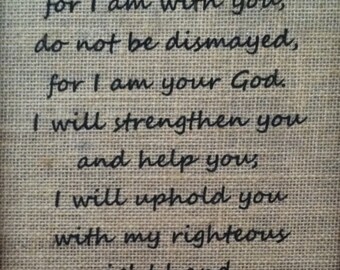 for I am with you,
do not be dismayed,
for I am your God.
I will strengthen you
and help you;
I will uphold you
with my righteous
right hand